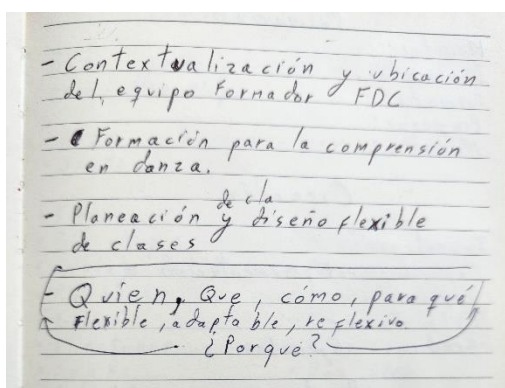 - Contextualización y ubicación
del equipo Formador FDC
- Formación para la comprensión
en danza.
de cla
- Planeación y diseño flexible
de clases
- Quien, Que, cómo, para qué
Flexible, adaptable, reflexivo
¿Porqué?